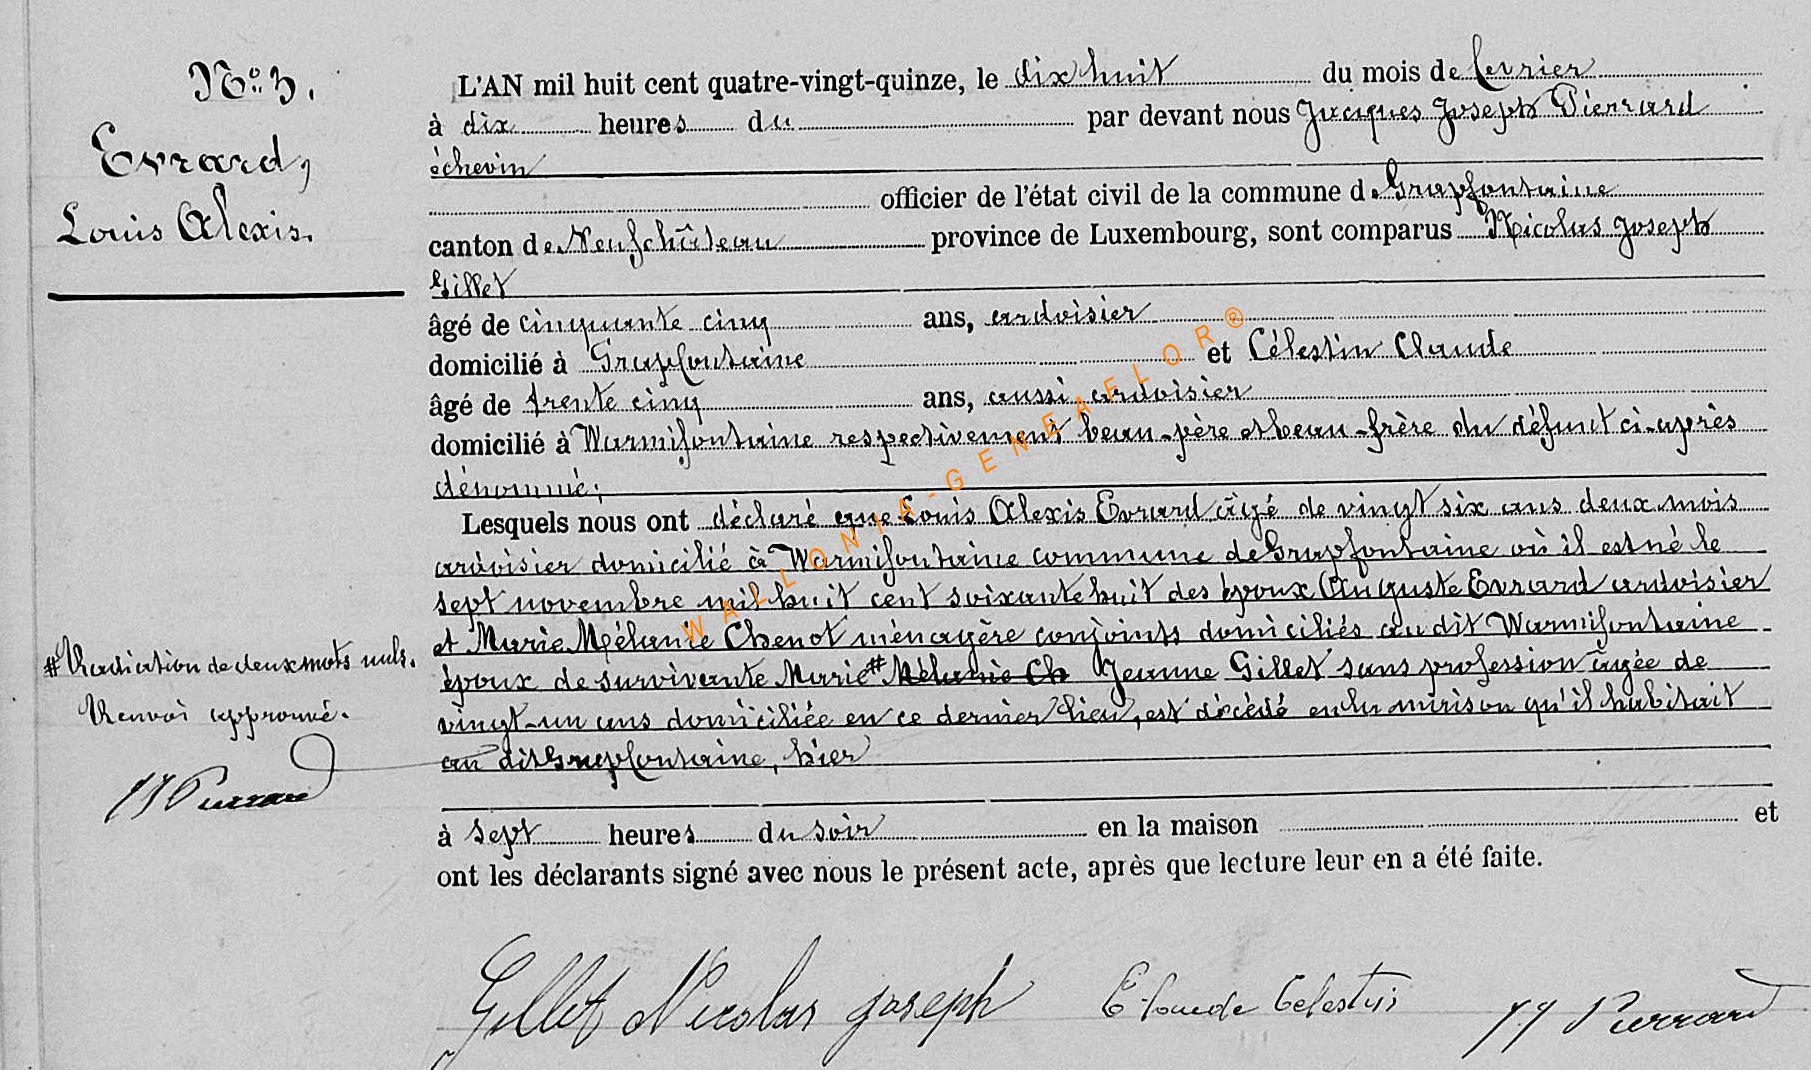 No 3.
Evrard,
Louis Alexis.
L'AN mil huit cent quatre-vingt-quinze, le dix huit du mois de fevrier
à dix heures du par devant nous Jacques Joseph Pierrard
échevin
officier de l'état civil de la commune de Grapfontaine
canton de Neufchâteau province de Luxembourg, sont comparus Nicolas Joseph
Gillet
âgé de cinquante cinq ans, ardoisier
domicilié à Grapfontaine et Célestin Claude
âgé de trente cinq ans, aussi ardoisier
domicilié à Warmifontaine respectivement beau-père et beau-frère du défunt ci-après
dénommé;
Lesquels nous ont déclaré que Louis Alexis Evrard âgé de vingt six ans deux mois
ardoisier domicilié à Warmifontaine commune de Grapfontaine où il est né le
sept novembre mil huit cent soixante huit des époux Auguste Evrard ardoisier
et Marie Mélanie Chenot ménagère conjoints domiciliés au dit Warmifontaine
époux de survivante Marie # Mélanie Ch Jeanne Gillet sans profession âgée de
vingt-un ans domiciliée en ce dernier lieu, est décédé en la maison qu'il habitait
au dit Grapfontaine, hier
à sept heures du soir en la maison et
ont les déclarants signé avec nous le présent acte, après que lecture leur en a été faite.
# Radiation de deux mots nuls.
Renvoi approuvé.
JJ Pierrard
Gillet Nicolas Joseph Claude Celestin JJ Pierrard
WALLONIA-GENEAFLOR®